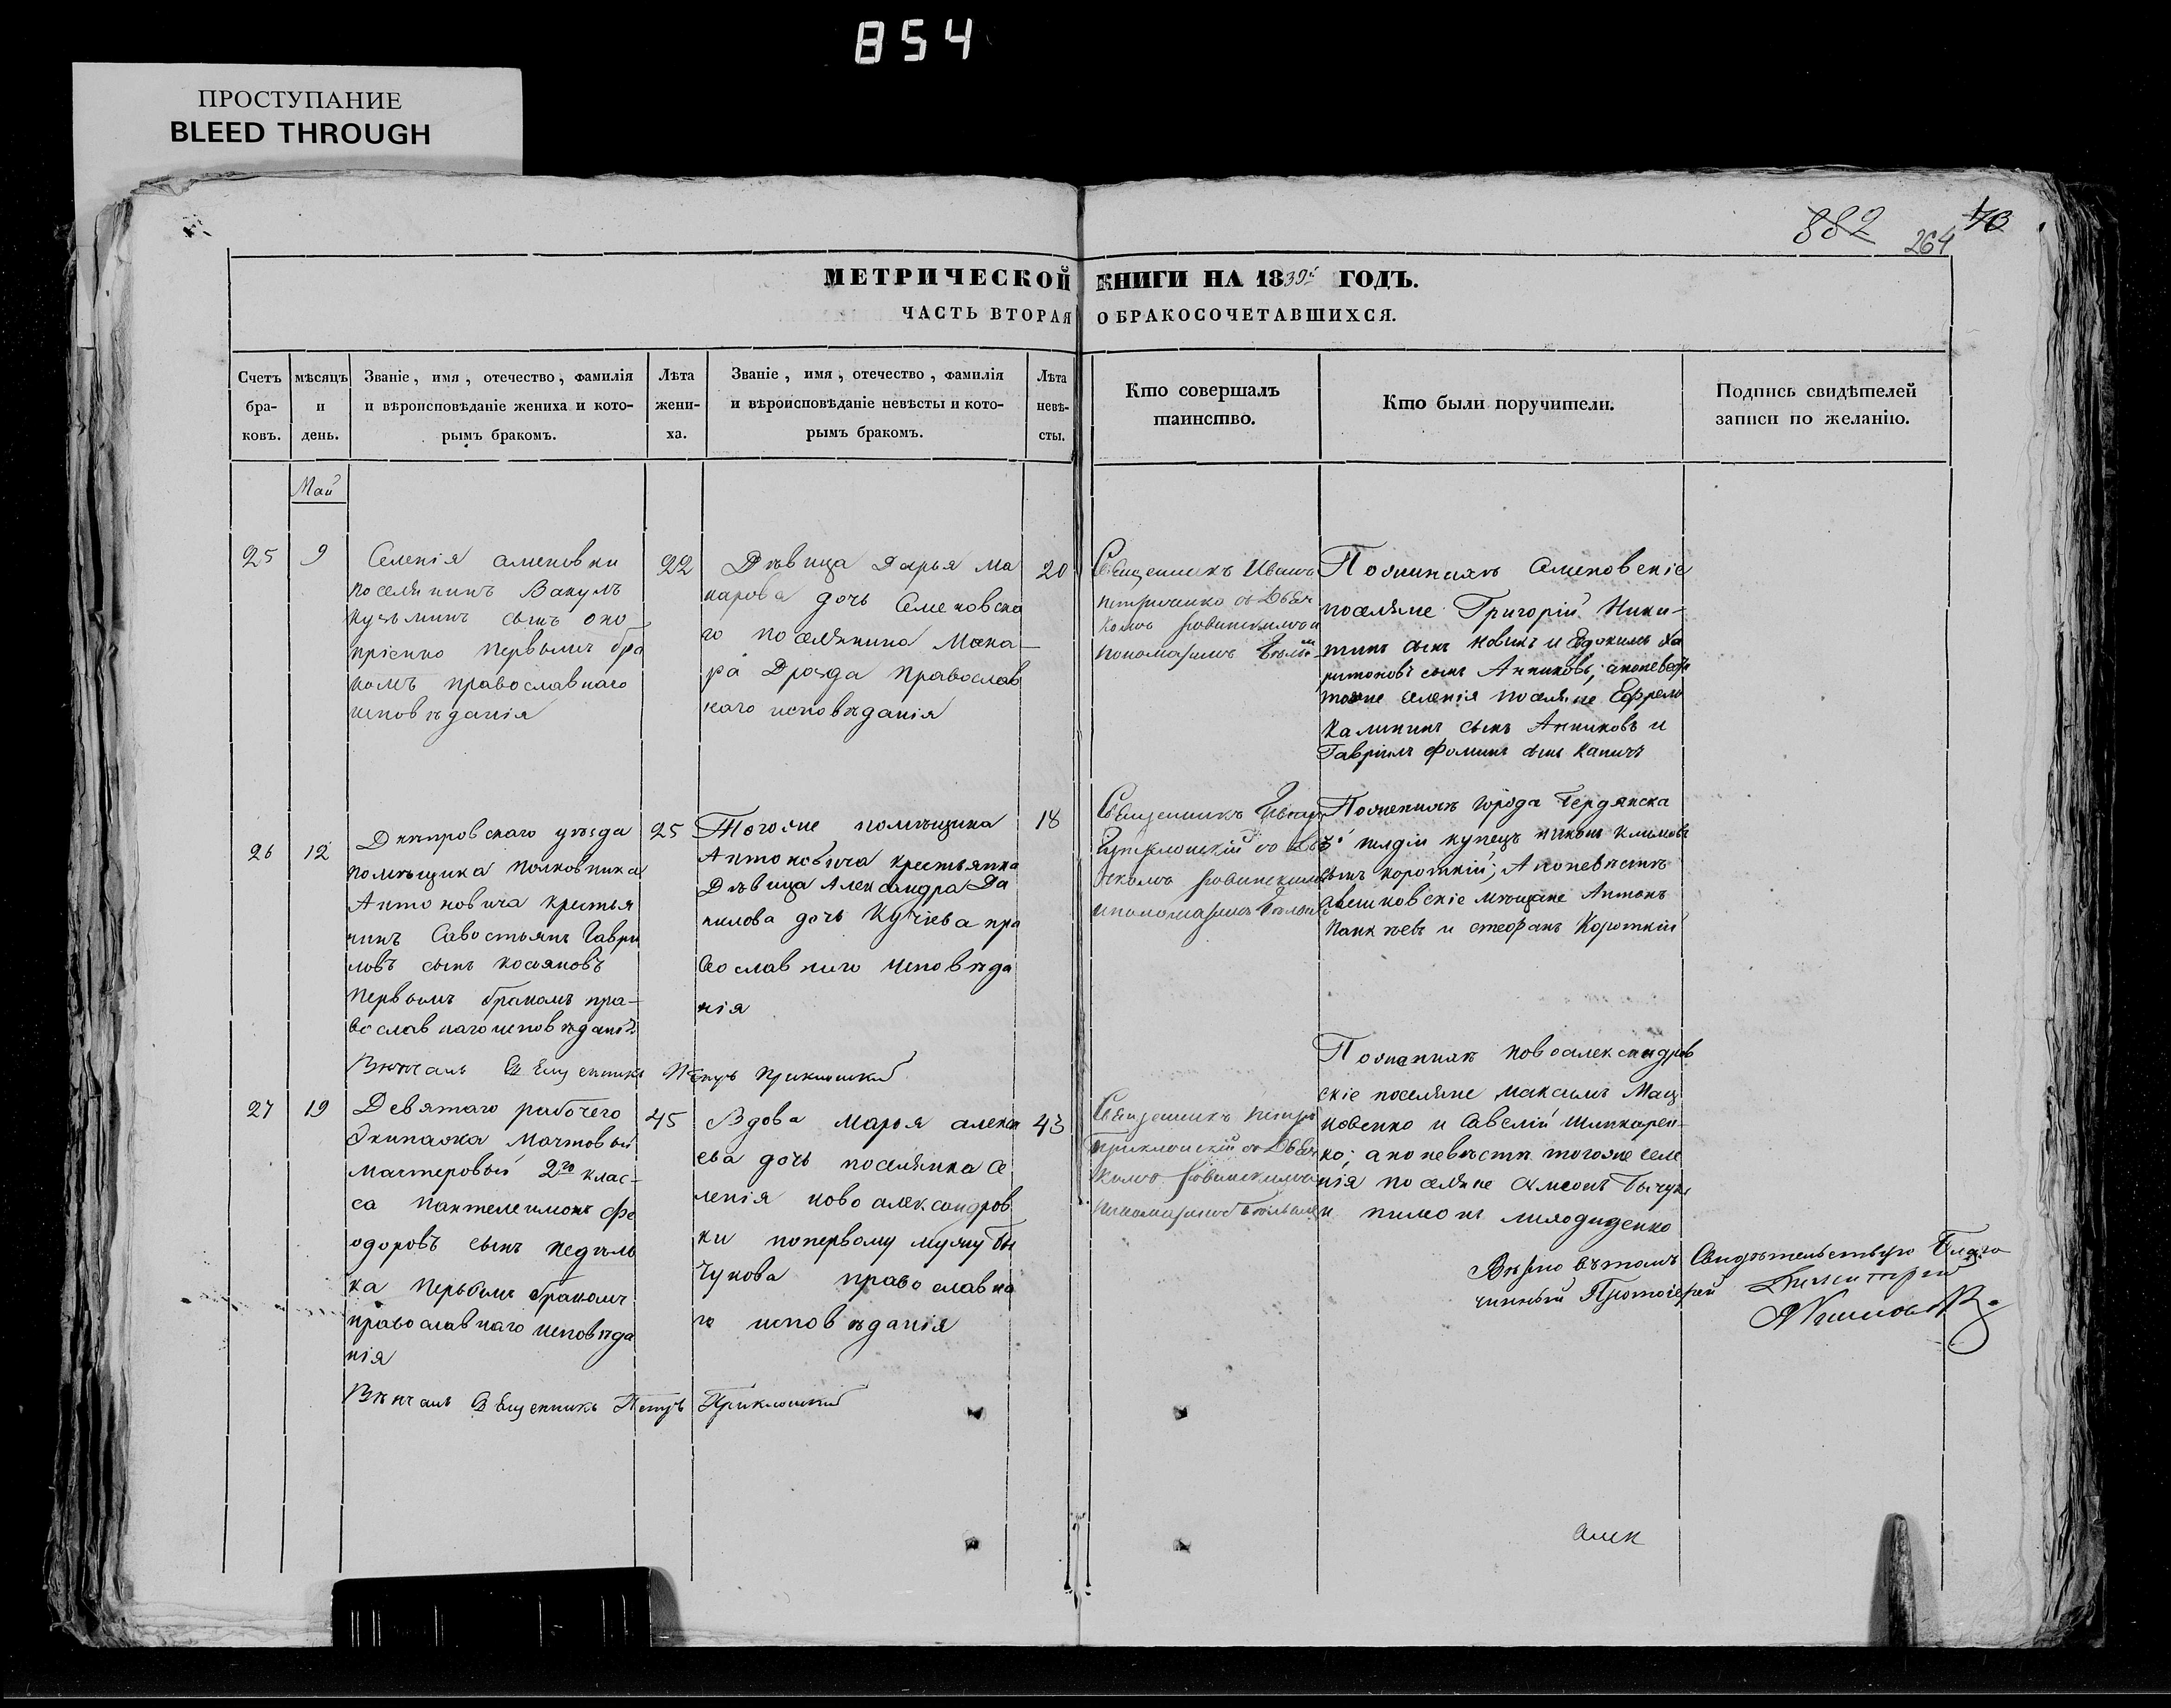 854
ПРОСТУПАНИЕ
BLEED THROUGH
882 264
МЕТРИЧЕСКОЙ КНИГИ НА 1839й ГОДЪ.
ЧАСТЬ ВТОРАЯ О БРАКОСОЧЕТАВШИХСЯ.
Счетъ бра- ковъ.
мѣсяцъ и день.
Званіе, имя, отечество, фамилія
и вѣроисповѣданіе жениха и кото-
рымъ бракомъ.
Лѣта жени- ха.
Званіе, имя, отечество, фамилія
и вѣроисповѣданіе невѣсты и кото-
рымъ бракомъ.
Лѣта невѣ- сты.
Кто совершалъ
таинство.
Кто были поручители.
Подпись свидѣтелей
записи по желанію.
Май
25
9
Селенія
поселянинъ Вакулъ
Кузьминъ сынъ оно
прієнко первымъ бра
комъ православнаго
исповѣданія
22
Дѣвица Дарья Ма
карова дочь Семеновска
го поселянина Мака-
ра Дрозда православ
наго исповѣданія
20
Священникъ Иванъ
Пономаремъ
По женихѣ
поселяне Григорій Ники-
тинъ сынъ Новикъ и Евдокимъ Ха
ритоновъ сынъ Анниковъ; а по невѣс
тѣ селенія поселяне Ефремъ
Калининъ сынъ Анниковъ и
Гавріилъ Фоминъ сынъ
26
12
Днѣпровскаго уѣзда
помѣщика полковника
Антоновича крестья
нинъ Савостьянъ Гаври
ловъ сынъ Косяновъ
первымъ бракомъ пра-
вославнаго исповѣданія.
Вѣнчалъ Священникъ Петръ Приклонскій
25
Тогоже помѣщика
Антоновича крестьянка
Дѣвица Александра Да
нилова дочь Кучіева пра
вославнаго исповѣда
нія
18
Священникъ
По женихѣ города Бердянска
3й гилдіи купецъ Никонъ Климовъ
сынъ Короткій; А по невѣстѣ
алешковскіе мѣщане Антонъ
и Стефанъ Короткій
27
19
Девятаго рабочего
Экипажа Мачтовый
мастеровый 2го клас-
са Пантелеимонъ Фе
одоровъ сынъ Недѣль
ка первымъ бракомъ
православнаго исповѣда
нія
Вѣнчалъ Священникъ Петръ Приклонскій
45
Вдова Марья Алекс
ева дочь поселянка се
ленія Новоалександров
ки по первому мужу Бы
чукова православна
го исповѣданія
43
Священникъ Петръ
Приклонскій съ Дьяч
комъ
По женихѣ новоалександров
скіе поселяне Максимъ Мац
ковенко и Савелій Шинкарен-
ко; а по невѣстѣ тогоже селе
нія поселяне Симеонъ Бычукъ
и Пимонъ
Вѣрно въ томъ Свидѣтельствую Благо
чинный Протоіерей Димитрій